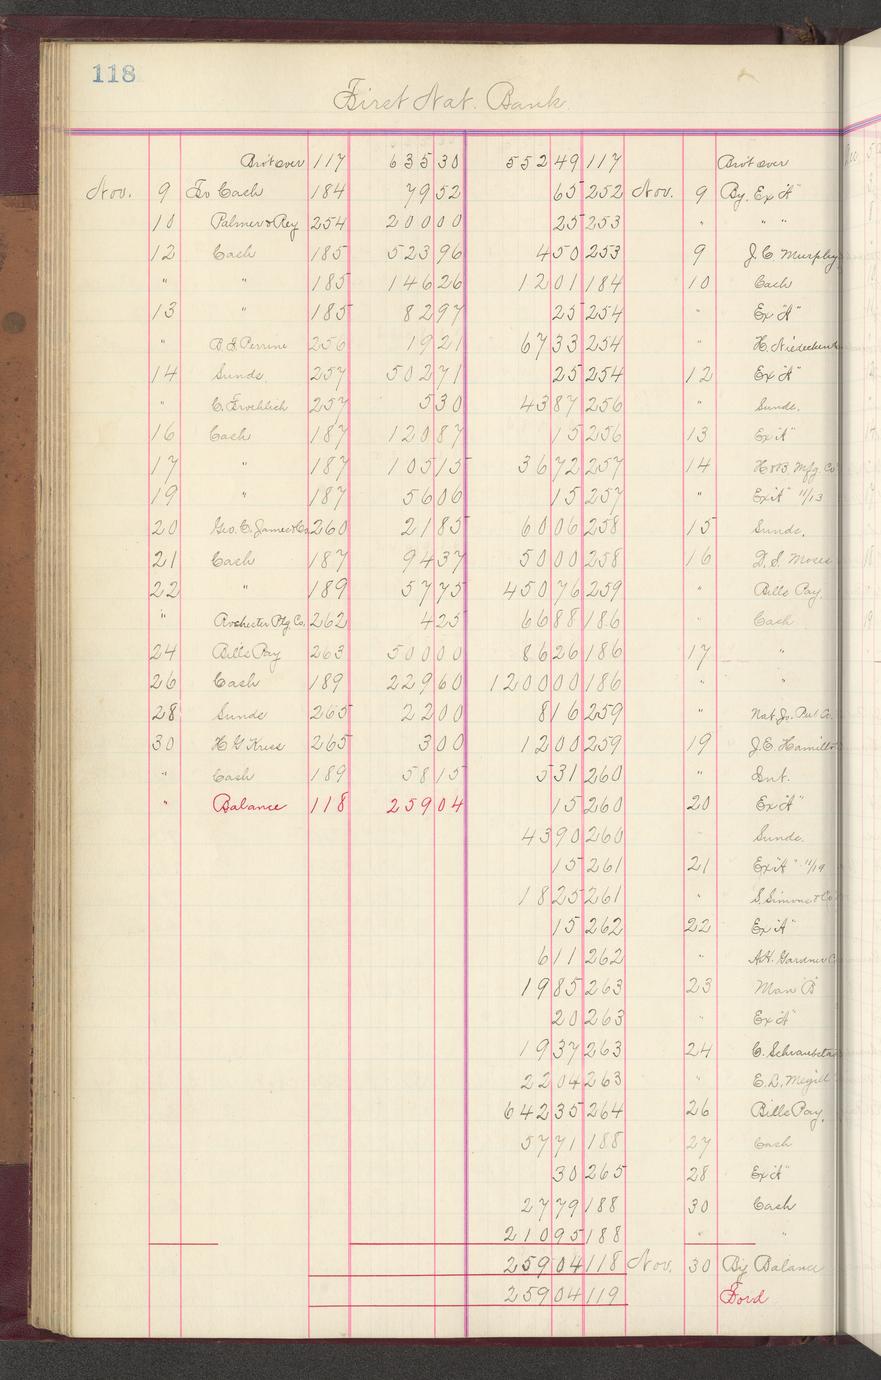 118
First Nat. Bank
Bro't over 117 635 30 552 49 117 Bro't over
Nov. 9 To Cash 184 79 52 65 252 Nov. 9 By Ex "A"
10 Palmer & Rey 254 200 00 25 253 " " "
12 Cash 185 523 96 4 50 253 9 J. C. Murphy
" " 185 146 26 12 01 184 10 Cash
13 " 185 82 97 25 254 " Ex "A"
" B. F. Perrine 256 19 21 67 33 254 " H.
14 Sunds 257 502 71 25 254 12 Ex "A"
" C. Froehlich 257 5 30 43 87 256 " Sunds.
16 Cash 187 120 87 15 256 13 Ex "A"
17 " 187 105 15 36 72 257 14 H & B Mfg. Co
19 " 187 56 06 15 257 " Ex "A" 11/13
20 Geo. C. James & Co 260 21 85 60 06 258 15 Sunds.
21 Cash 187 94 37 50 00 258 16 D. S. Moses
22 " 189 57 75 450 76 259 " Bills Pay.
" Rochester Ptg. Co. 262 4 25 66 88 186 " Cash
24 Bills Pay 263 500 00 86 26 186 17 "
26 Cash 189 229 60 1200 00 186 " "
28 Sunds 265 22 00 8 16 259 " Nat. Jo. Pub. Co.
30 H G Kress 265 3 00 12 00 259 19 J. E. Hamilton
" Cash 189 58 15 5 31 260 " Int.
" Balance 118 259 04 15 260 20 Ex "A"
43 90 260 " Sunds.
15 261 21 Ex "A" 11/19
18 25 261 " S. Simons & Co
15 262 22 Ex "A"
6 11 262 " A.H. Gardner
19 85 263 23 Man "B"
20 263 " Ex "A"
19 37 263 24 C.
22 04 263 " E. B. Megill
642 35 264 26 Bills Pay.
57 71 188 27 Cash
30 265 28 Ex "A"
27 79 188 30 Cash
210 95 188 " "
259 04 118 Nov. 30 By Balance
259 04 119 Ford